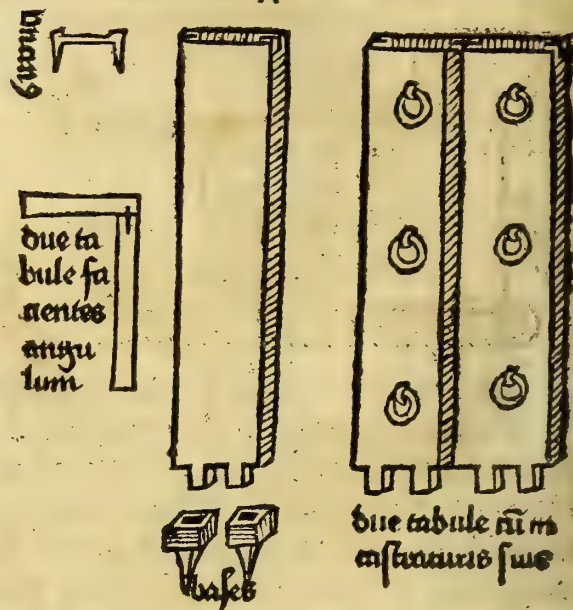 due ta
bule fa
cientes
angu
lum
baſes
due tabule cū in
caſtraturis ſuis